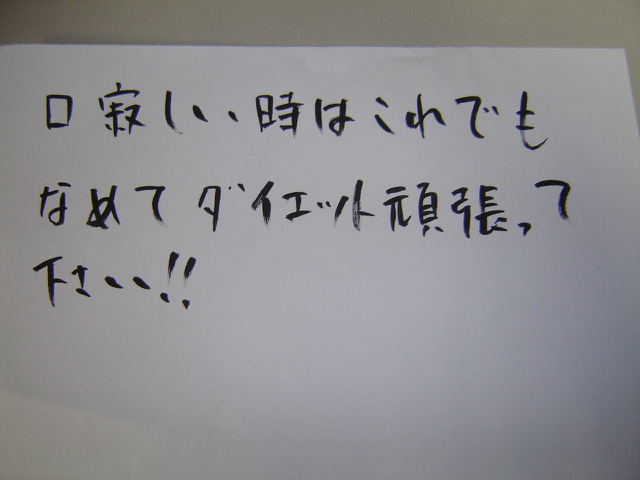 口寂しい時はこれでも
なめてダイエット頑張って
下さい!!